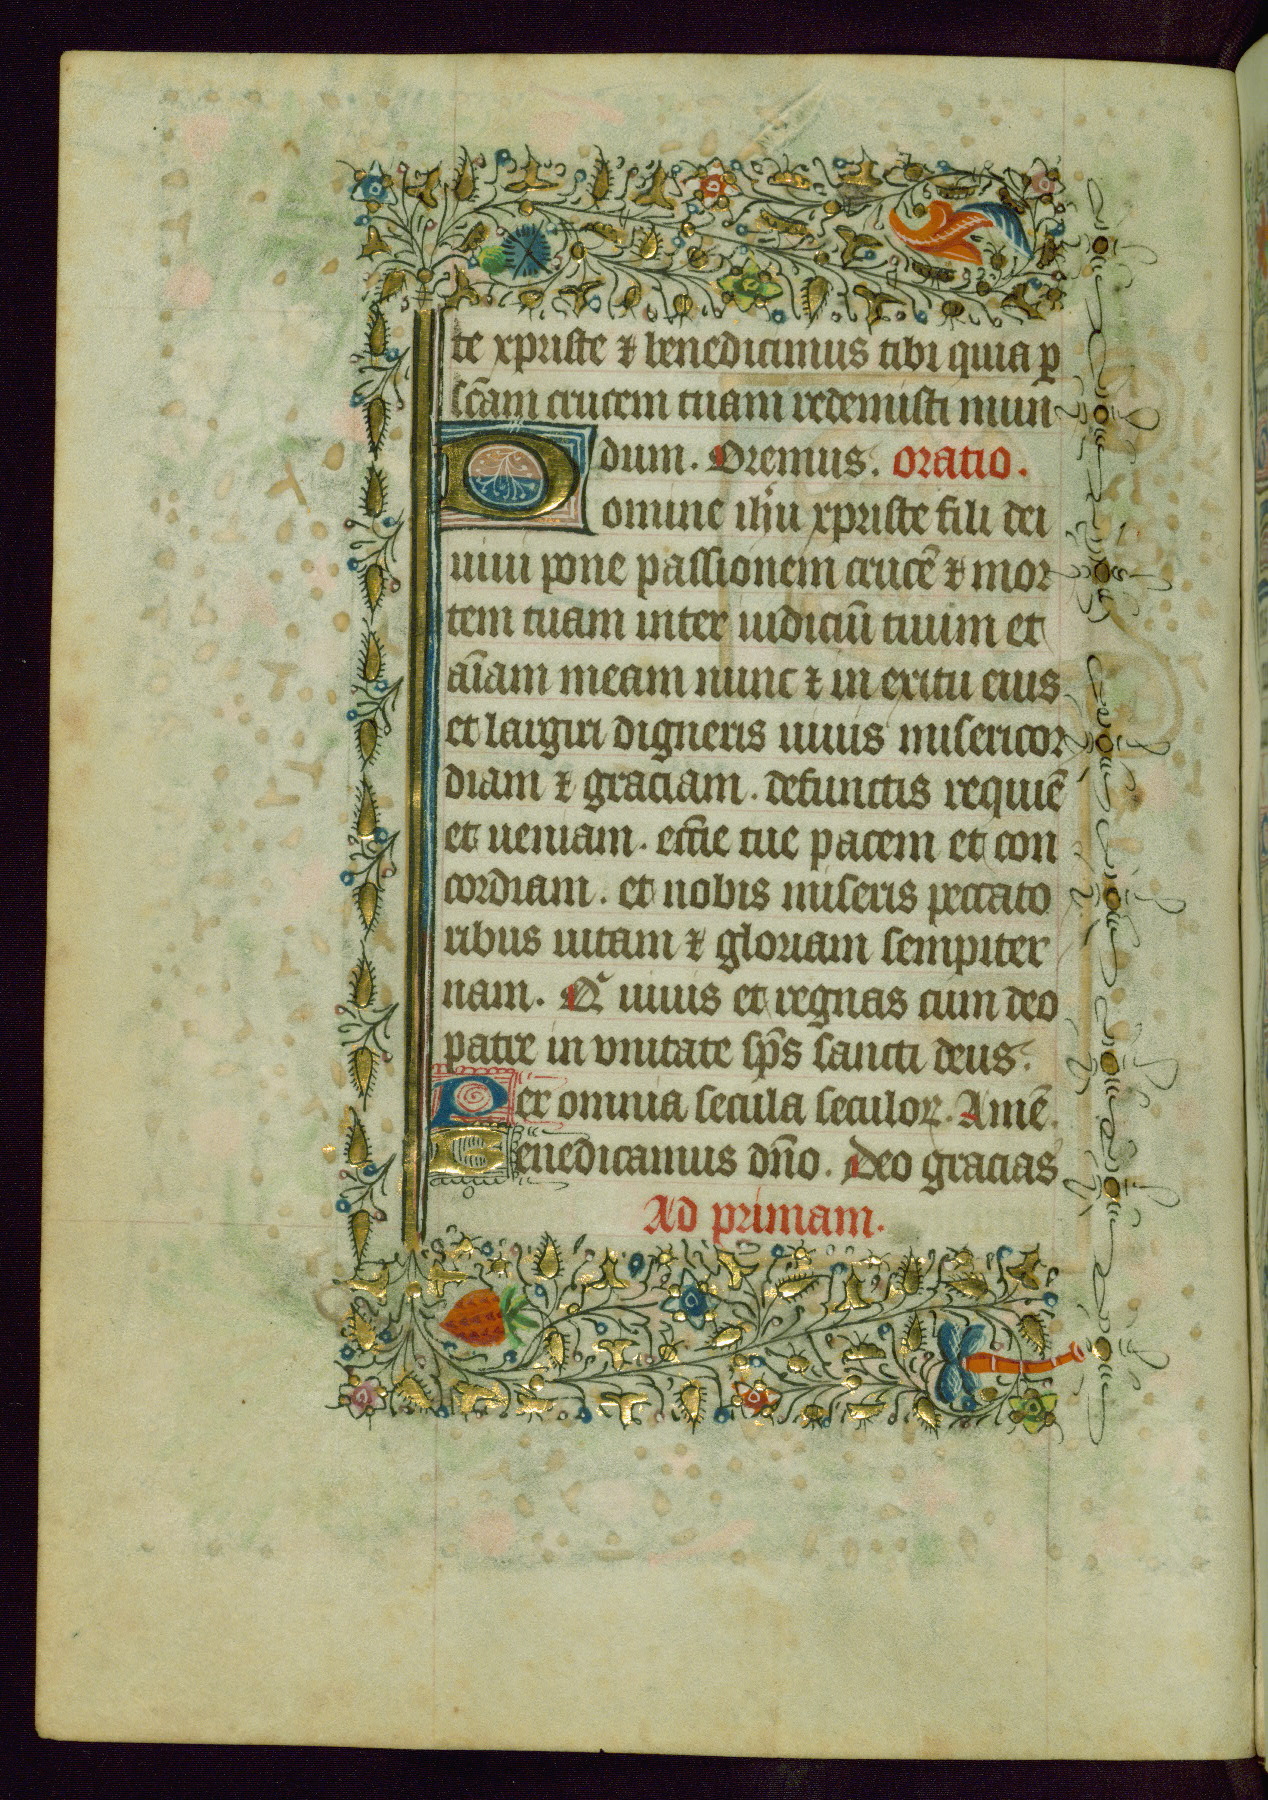 te xpriste ⁊ benedicimus tibi quia ꝑ
sc̄am crucem tuam redemisti mun
dum. Oremus. oratio.
Domine ih̄u xpriste fili dei
uiui pone passionem crucē ⁊ mor
tem tuam inter iudiciū tuum et
aīam meam nunc ⁊ in exitu eius
et largiri digneris uiuis misericor
diam ⁊ graciam. defunctis requiē
et ueniam. eccīe tue pacem et con
cordiam. et nobis miseris peccato
ribus uitam ⁊ gloriam sempiter
nam. Qͥ uiuis et regnas cum deo
patre in vnitate sp̄s sancti deus.
Per omnia secula seculoꝝ. Amē.
Benedicamus dn̄o. Deo gracias
Ad primam.